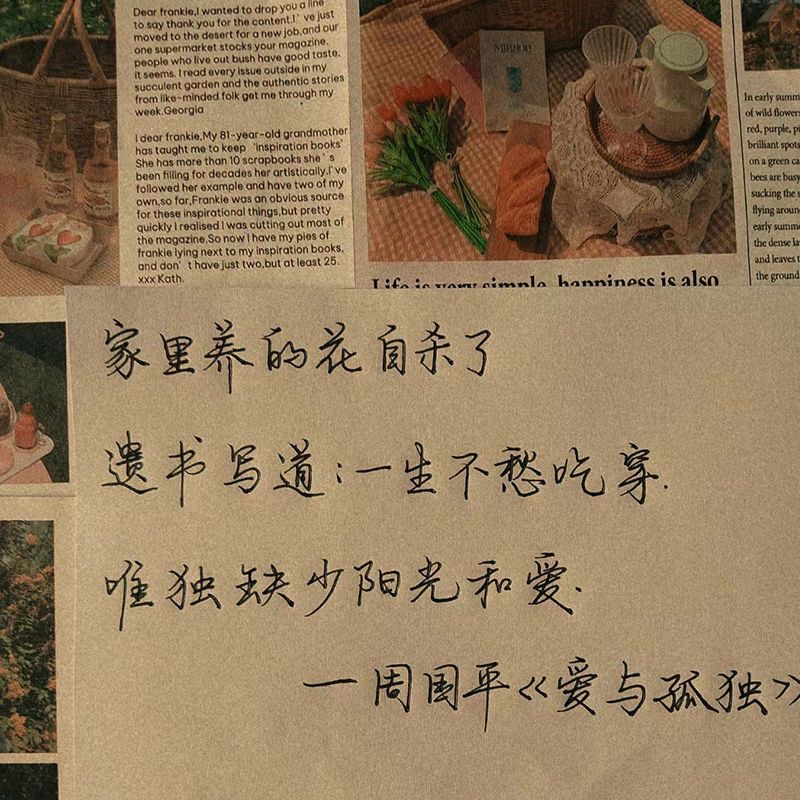 Dear frankie,I wanted to drop you a line
to say thank you for the content.I've just
moved to the desert for a new job,and our
one supermarket stocks your magazine.
people who live out bush have good taste,
it seems. I read every issue outside in my
succulent garden and the authentic stories
from like-minded folk get me through my
week.Georgia
I dear frankie,My 81-year-old grandmother
has taught me to keep 'inspiration books'
She has more than 10 scrapbooks she's
been filling for decades her artistically.I've
followed her example and have two of my
own,so far,Frankie was an obvious source
for these inspirational things,but pretty
quickly I realised I was cutting out most of
the magazine.So now I have my pies of
frankie lying next to my inspiration books,
and don't have just two,but at least 25.
xxx Kath.
MIRROR
Life is very simple, happiness is also
In early summ
of wild flower
red, purple, pi
brilliant spots
on a green ca
bees are busy
sucking the s
flying aroun
early summe
the dense la
and leaves t
the ground
家里养的花自杀了
遗书写道:一生不愁吃穿.
唯独缺少阳光和爱.
—周国平《爱与孤独》